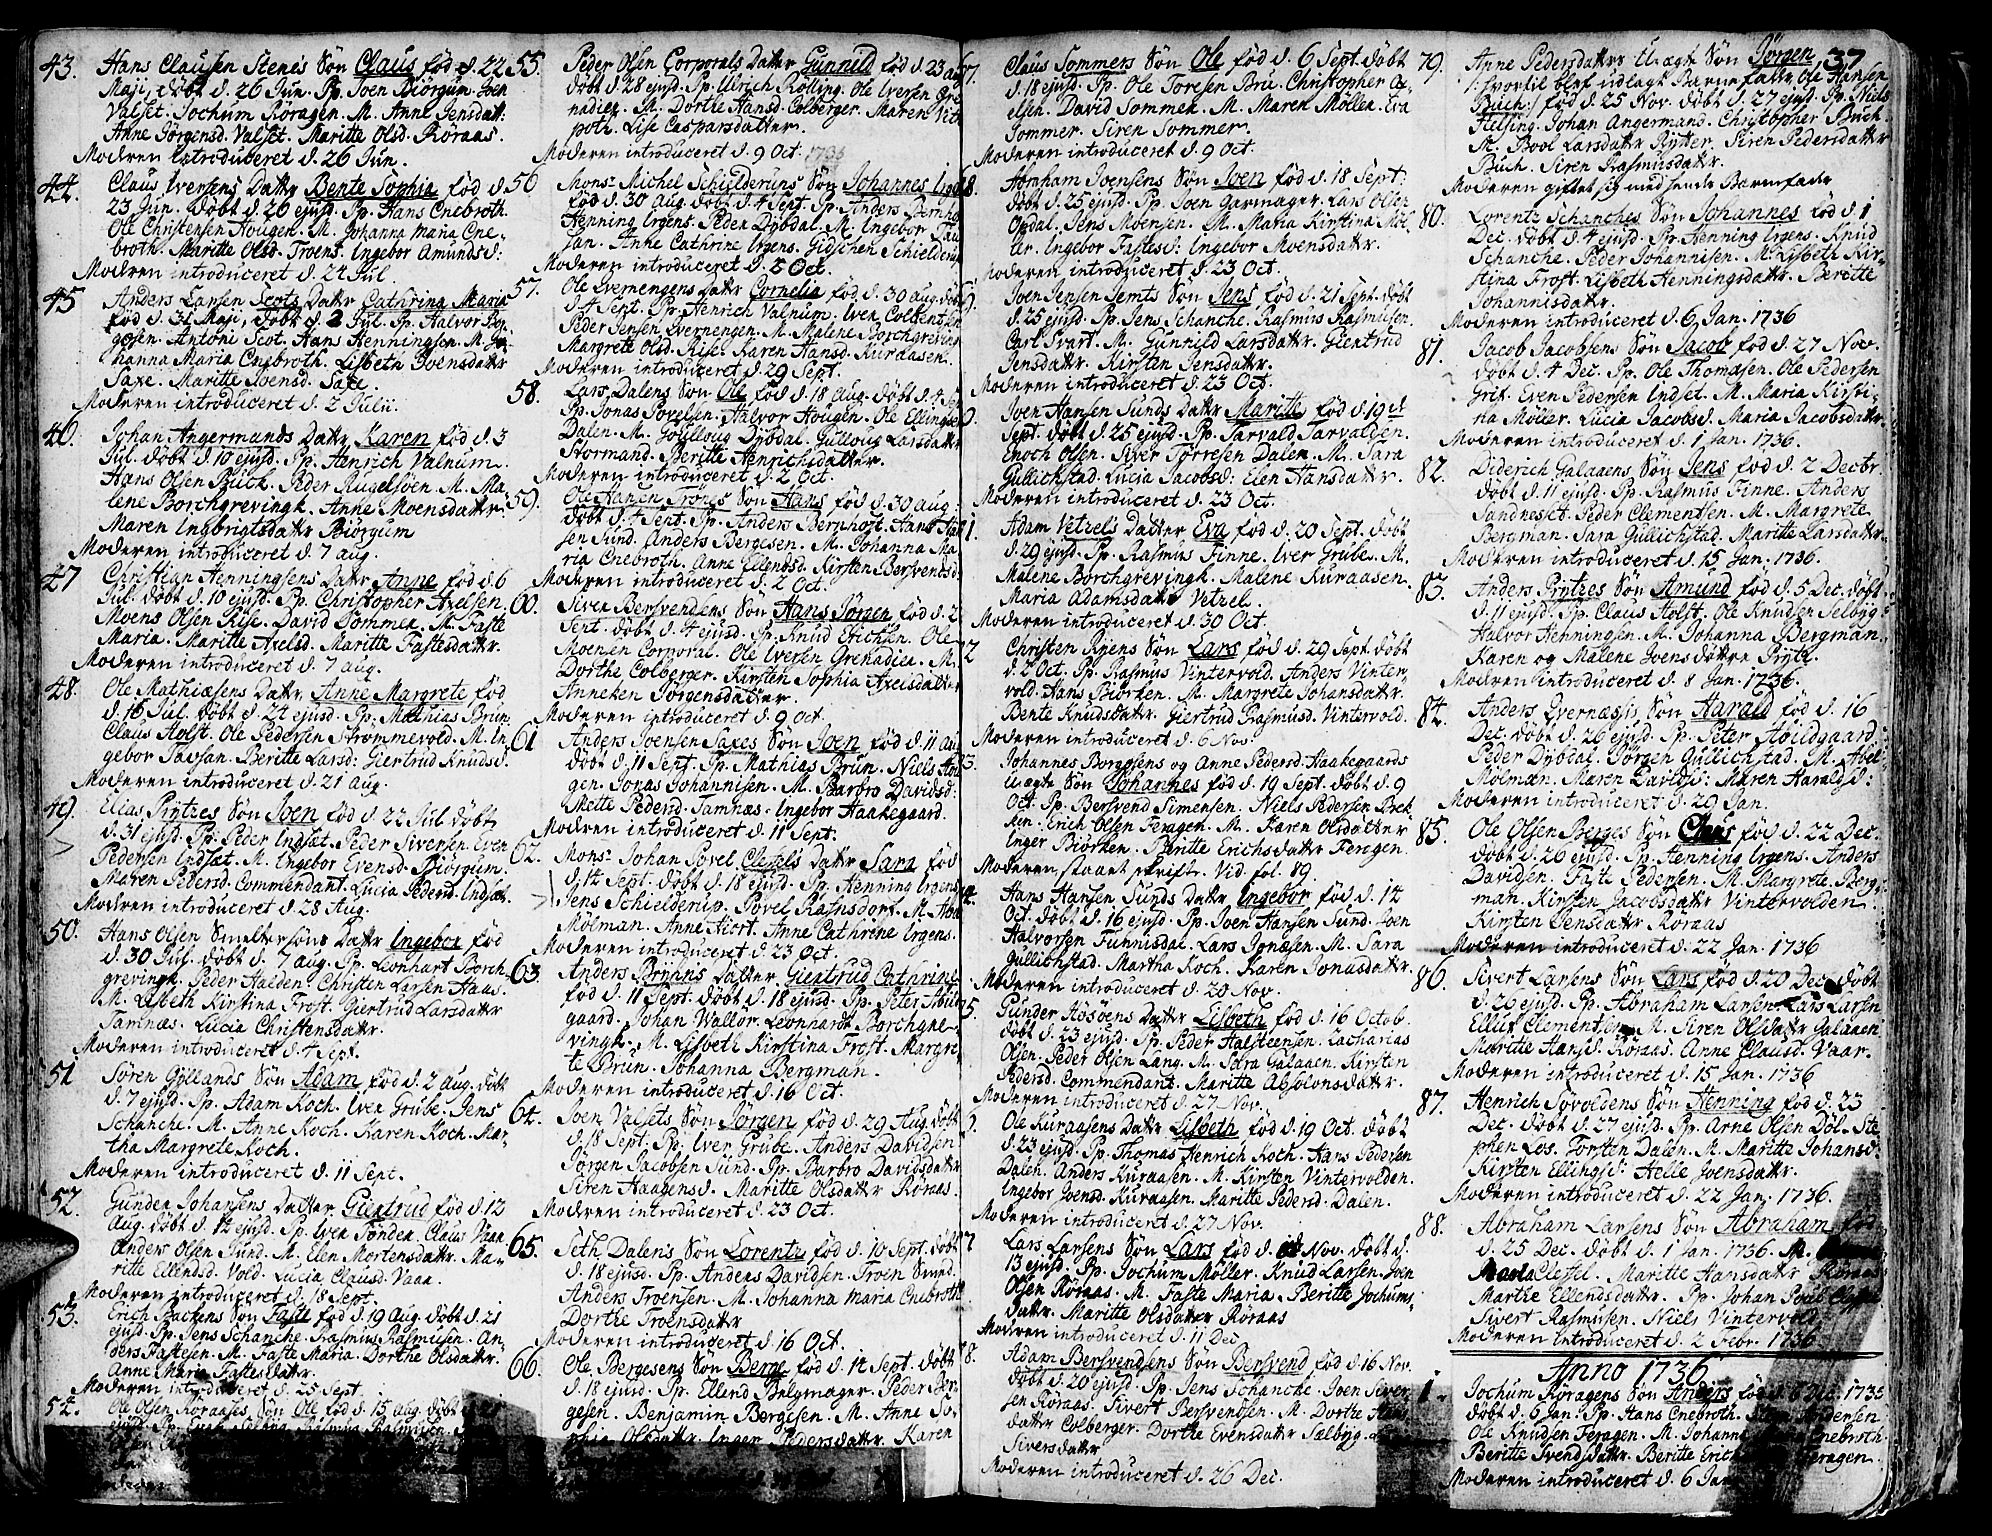 43. Hans Clausen Stenes Søn Claus fød d. 22
Maji, døbt d. 26 Jun. Pp. Joen Biörgum. Joen
Valset. Jochum Röragen. M. Anne Jensdatt:
Anne Jörgensd. Valset. Maritte Olsd. Röraas.
Moderen introduceret d. 26 Jun.
44. Claus Iversens Datter Bente Sophia fød d.
23 Jun. døbt d. 26 ejusd. Pp. Hans Cnebroth.
Ole Christensen Hougen. M. Johanna Maria Cne-
broth. Maritte Olsd. Troens. Ingebor Amundsd:
Moderen introduceret d. 22 Jul.
45 Anders Larsen Scots Dattr Cathrina Maria
fød d. 31 Maji, døbt d. 2 Jul. Pp. Halvor Bor-
gosen. Antoni Scot. Hans Henningsen. M. Jo-
hanna Maria Cnebroth. Lisbeth Joensdattr
Saxe. Maritte Joensd. Saxe.
Moderen introduceret d. 2 Julii.
46. Johan Angermands Dattr Karen fød d. 3
Jul. døbt d. 10 ejusd. Pp. Henrich Valnum.
Hans Olsen Buch. Peder Rugelsöen. M. Ma-
lene Borchgrevingk. Anne Moensdattr.
Maren Ingbrigtsdattr Biörgum
Moderen introduceret d. 7 aug.
47 Christian Henningsens Dattr Anne fød d. 6
Jul. døbt d. 10 ejusd. Pp. Christopher Axelsen
Moens Olsen Rise. David Sommer. M. Faste
Maria. Maritte Axelsd. Maritte Fastesdattr.
Moderen introduceret d. 7 aug.
48. Ole Mathiæsens Dattr Anne Margrete fød
d. 16 Jul. døbt d. 24 ejusd. Pp. Mathias Brun
Claus Holst. Ole Pedersen Strömmevold. M. In-
gebor Tavsan. Beritte Larsd: Giertrud Knudsd.
Moderen introduceret d. 21 Aug.
49. Elias Prytzes Søn Joen fød d. 22 Jul døbt
d. 31 ejusd. Pp. Peder Indsæt. Peder Siversen. Even
Pedersen Indsæt. M. Ingebor Evensd. Biörgum.
Maren Pedersd. Commendant. Lucia Pedersd. Indsæt.
Moderen introduceret d. 28 Aug.
50. Hans Olsen Smeltersøns Dattr Ingebor fød
d. 30 Jul. døbt d. 7 aug. Pp. Leonhart Borch-
grevingk. Peder Halden. Christen Larsen Haas.
M. Lisbeth Kirstina Frost. Giertrud Larsdattr
Tamnæs. Lucia Christensdattr.
Moderen introduceret d. 4 Sept.
51 Sören Gyllands Søn Adam fød d. 2 aug. døbt
d. 7 ejusd. Pp. Adam Koch. Iver Grube. Jens
Schanche. M. Anne Koch. Karen Koch. Mar-
tha Margrete Koch.
Moderen introduceret d. 11 Sept.
52. Gunder Johansens Datter Giertrud fød d. 12
Aug. døbt d. 14 ejusd. Pp. Iver Tönder. Claus Vaar
Anders Olsen Sund. M. Elen Mortensdattr. Ma-
ritte Ellensd. Vold. Lucia Clausd. Vaar.
Moderen introduceret d. 18 Sept.
53. Erich Backens Søn Faste fød d. 19 aug døbt d. 21
ejusd. Pp. Jens Schanche. Rasmus Rasmusen. An-
ders Fastesen. M. Faste Maria. Dorthe Olsdattr.
Anne Maria Fastesdattr.
Moderen introduceret d. 25 Sept.
54. Ole Olsen Röraases Søn Ole fød d. 15 aug. døbt
55. Peder Olsen Corporals Dattr Gunnild fød d. 23 aug
døbt d. 28 ejusd. Pp. Ulrich Rölling. Ole Iversen Gre-
nadier. M. Dorthe Hansd. Colberger. Maren Vit-
potr. Lise Casparsdatter.
Moderen introduceret d. 9 Oct. 1735
56 Mons: Michel Schielderups Søn Johannes Irgens
fød d. 30 aug. døbt d. 4 Sept. Pp. Anders Bernhoft
Henning Irgens. Peder Dybdal. M. Ingebor Tau-
san. Anne Cathrine Irgens. Gidschen Schielderup
Moderen introduceret d. 5 Oct.
57. Ole Evernengens Dattr Cornelia fød d. 30 aug. døbt
d. 4 Sept. Pp. Henrich Valnum. Iver Colbentsen
Peder Jensen Evernengen. M. Malene Borchgreving
Margrete Olsd. Rise. Karen Hansd. Kuraasen.
Moderen introduceret d. 29 Sept.
58. Lars Dalens Søn Ole fød d. 18 aug. døbt d. 4 Sept
Pp. Jonas Povelsen. Halvor Hougen. Ole Ellingsen
Dalen. M. Goulloug Dybdal. Gulloug Larsdattr
Stormand. Beritte Henrichsdatter.
Moderen introduceret d. 2 Oct.
59. Ole Hansen Trones Søn Hans fød d. 30 aug.
døbt d. 4 Sept. Pp. Anders Bernhoft. Hans Han-
sen Sund. Anders Bergesen. M. Johanna Ma-
ria Cnebroth. Anne Ellensd. Kirsten Bersvendsd.
Moderen introduceret d. 2 Oct.
60. Siver Bersvendsens Søn Hans Jörgen fød d. 2
Sept. døbt d. 4 ejusd. Pp. Knud Erichsen. Ole
Moensen Corporal. Ole Iversen Grenadier. M.
Dorthe Colberger. Kirsten Sophia Axelsdatter
Anneken Jörgensdatter.
Moderen introduceret d. 9 Oct.
61 Anders Joensen Saxes Søn Joen fød d. 11 aug
døbt d. 11 Sept. Pp. Mathias Brun. Niels Hou-
gen. Jonas Johannisen. M. Barbro Davidsd:
Mette Pedersd. Tamnæs. Ingebor Haakegaard.
Moderen introduceret d. 11 Sept.
62. Mons: Johan Povel Clessels datter Sara fød
d. 14 Sept. døbt d. 18 ejusd. Pp. Henning Irgens
Jens Schielderup. Povel Rafnsdorf. M. Abel
Mölman. Anne Hiort. Anne Cathrine Irgens.
Moderen introduceret d. 23 Oct.
63. Anders Bryhns Datter Giertrud Cathrine
fød d. 11 Sept. døbt d. 18 ejusd. Pp. Peter Hiuid-
gaard. Johan Wallör. Leonhardt Borchgre-
vingk. M. Lisbeth Kirstina Frost. Margre-
te Brun. Johanna Bergman.
Moderen introduceret d. 16 Oct.
64. Joen Valsets Søn Jörgen fød d. 29 Aug. døbt
d. 18 Sept. Pp. Iver Grube. Anders Davidsen
Jörgen Jacobsen Sund. M. Barbro Davidsdattr
Siren Haagensd. Maritte Olsdattr Röraas
Moderen introduceret d. 23 Oct.
65. Seth Dalens Søn Lorentz fød d. 10 Sept. døbt
d. 18 ejusd. Pp. Anders Davidsen. Troen Svend.
Anders Troensen. M. Johanna Maria Cnebroth
Dorthe Troensdattr
Moderen introduceret d. 16 Oct.
66. Ole Bergesens Søn Berge fød d. 14 Sept. døbt
d. 18 ejusd. Pp. Ellend Belgmager. Peder Ber-
gesen. Benjamin Bergesen. M. Anne So-
phia Olsdattr. Inger Pedersdattr. Karen
7. Claus Sommers Søn Ole fød d. 6 Sept. døbt
d. 18 ejusd. Pp. Ole Toresen Böru. Christopher A-
elsen. David Sommer. M. Maren Möller. Eva
Sommer. Siren Sommer.
Moderen introduceret d. 9 Oct.
8. Abraham Joensens Søn Joen fød d. 18 Sept:
døbt d. 25 ejusd. Pp. Joen Garmager. Lars Olsen
Opdal. Jens Moensen. M. Maria Kirstina Möl-
ler. Ingebor Fastesd: Ingebor Moensdattr.
Moderen introduceret d. 23 Oct.
9. Joen Jensen Jemts Søn Jens fød d. 21 Sept. døbt
d. 25 ejusd. Pp. Jens Schanche. Rasmus Rasmusen.
Carl Svart. M. Gunnild Larsdattr. Giertrud
Jensdattr. Kirsten Jensdattr.
Moderen introduceret d. 23 Oct.
0. Joen Hansen Sunds Dattr Maritte fød d. 19
Sept. døbt d. 25 ejusd. Pp. Tarvald Tarvaldsen.
Enoch Olsen. Siver Torresen Dalen. M. Sara
Gullichstad. Lucia Jacobsd: Elen Hansdattr.
Moderen introduceret d. 23 Oct.
1. Adam Vetzels Datter Eva fød d. 20 Sept. døbt
d. 29 ejusd. Pp. Rasmus Finne. Iver Grube. M.
Malene Borchgrevingk. Malene Kuraasen.
Maria Adamsdattr Vetzel.
Moderen introduceret d. 30 Oct.
2 Christen Ryens Søn Lars fød d. 29 Sept. døbt
d. 2 Oct. Pp. Rasmus Vintervold. Anders Vinter-
vold. Hans Biörken. M. Margrete Johansdattr.
Bente Knudsdattr. Giertrud Rasmusd. Vintervold.
Moderen introduceret d. 6 Nov.
3. Johannes Borgosens og Anne Pedersd. Haakegaards
uægte Søn Johannes fød d. 19 Sept. døbt d. 9
Oct. Pp. Bersvend Simensen. Niels Pedersen Brek-
ken. Erich Olsen Feragen. M. Karen Olsdatter
Inger Biörken. Bentte Erichsdattr Feragen.
Moderen staaet skrifte. Vid. fol. 89
4. Hans Hansen Sunds Dattr Ingebor fød d. 14
Oct. døbt d. 16 ejusd. Pp. Joen Hansen Sund. Joen
Halvorsen Funnisdal. Lars Jonæsen. M. Sara
Gullichstad. Martha Koch. Karen Jonasdattr.
Moderen introduceret d. 20 Nov.
5. Gunder Hosöens Dattr Lisbeth fød d. 16 Octob.
døbt d. 23 ejusd. Pp. Peder Halsteensen. Zacharias
Olsen. Peder Olsen Lang. M. Sara Galaaen. Kirsten
Pedersd. Commendant. Maritte Absolonsdattr.
Moderen introduceret d. 27 Nov.
6. Ole Kuraasens Dattr Lisbeth fød d. 19 Oct. døbt
d. 23 ejusd. Pp. Thomas Henrich Koch. Hans Pedersen
Dalen. Anders Kuraasen. M. Kirsten Vintervolden.
Ingebor Joensd. Kuraasen. Maritte Pedersd. Dalen.
Moderen introduceret d. 27 Nov.
7 Lars Larsens Søn Lars fød d. Nov. døbt d.
13 ejusd. Pp. Jochum Möller. Knud Larsen. Joen
Olsen Röraas. M. Faste Maria. Beritte Jochums-
dattr. Maritte Olsdattr Röraas
Moderen introduceret d. 11 Dec.
8. Adam Bersvendsens Søn Bersvend fød d. 16 Nov.
døbt d. 20 ejusd. Pp. Jens Schanche. Joen Siver-
sen Röraas. Sivert Bersvendsen. M. Dorthe Hans-
dattr Colberger. Dorthe Evensdattr Sælbyg.
Siversdattr
Moderen introduceret d. 26 Dec.
37
79. Anne Pedersdattrs Uægte Søn Jörgen
/: hvortil blef udlagt Barnefatter Ole Hansen
Buch :/ fød d. 25 Nov. døbt d. 27 ejusd. Pp. Niels
Helsing. Johan Angermand. Christopher Buch.
M. Bool Larsdattr Rytter. Siren Pedersdattr
Buch. Siren Rasmusdattr.
Moderen giftet sig med hendes Barnefader
80. Lorentz Schanches Søn Johannes fød d. 1
Dec. døbt d. 4 ejusd. Pp. Henning Irgens. Knud
Schanche. Peder Johannisen. M. Lisbeth Kir-
stina Frost. Lisbeth Henningsdattr. Beritte
Johannisdattr.
Moderen introduceret d. 6 Jan. 1736
81. Jacob Jacobsens Søn Jacob fød d. 27 Nov.
døbt d. 4 Dec. Pp. Ole Thomæsen. Ole Pedersen
Grif. Even Pedersen Indset. M. Maria Kirsti-
na Möller. Lucia Jacobsd. Maria Jacobsdattr.
Moderen introduceret d. 1 Jan. 1736.
82. Diderich Galaaens Søn Jens fød d. 2 Decbr.
døbt d. 11 ejusd. Pp. Rasmus Finne. Anders
Sandneset. Peder Clementsen. M. Margrete
Bergman. Sara Gullichstad. Maritte Larsdattr.
Moderen introduceret d. 15 Jan. 1736.
83. Anders Prytzes Søn Amund fød d. 5 Dec. døbt
d. 11 ejusd. Pp. Claus Holst. Ole Knudsen Selbyg.
Halvor Henningsen. M. Johanna Bergman.
Karen og Malene Joensdöttre Prytz.
Moderen introduceret d. 8 Jan. 1736.
84. Anders Evernæssis Søn Harald fød d. 16
Dec. døbt d. 26 ejusd. Pp. Peter Hiuidgaard
Peder Dybdal. Jörgen Gullichstad. M. Abel
Mölman. Maren Davidsd: Maren Haraldsd:
Moderen introduceret d. 29 Jan.
85. Ole Olsen Berges Søn Claus fød d. 22 Dec.
døbt d. 26 ejusd. Pp. Henning Irgens. Anders
Davidsen. Faste Pedersen. M. Margrete Berg-
man. Kirsten Jacobsdattr Vintervolden
Kirsten Jensdattr Röraas
Moderen introduceret d. 22 Jan. 1736
86. Sivert Larsens Søn Lars fød d. 20 Dec. døbt
d. 26 ejusd. Pp. Abraham Larsen. Lars Larsen
Elluf Clementsen. M. Siren Olsdattr Galaaen
Maritte Hansd. Röraas. Anne Clausd. Vaar.
Moderen introduceret d. 15 Jan. 1736
87. Henrich Sövoldens Søn Henning fød d. 23
Dec. døbt d. 27 ejusd. Pp. Arne Olsen Döl. Ste-
phen Los. Torsten Dalen. M. Maritte Johansd:
Kirsten Ellingsd: Helle Joensdattr.
Moderen introduceret d. 22 Jan. 1736.
88. Abraham Larsens Søn Abraham fød
d. 25 Dec. døbt d. 1 Jan. 1736. M.
Maria Clessel. Maritte Hansdattr Röraas
Marthe Ellendsdattr. Pp. Johan Povel Clessel
Sivert Rasmusen. Niels Vintervold
Moderen introduceret d. 2 Febr. 1736
Anno 1736
1. Jochum Röragens Søn Anders fød d. 6 Dec. 1735
døbt d. 6 Jan: Pp. Hans Cnebroth. Andersen
Ole Knudsen Feragen. M. Johanna Cnebroth
Beritte Svendsdattr. Beritte Erich Feragen.
Moderen introduceret d. 6 Jan